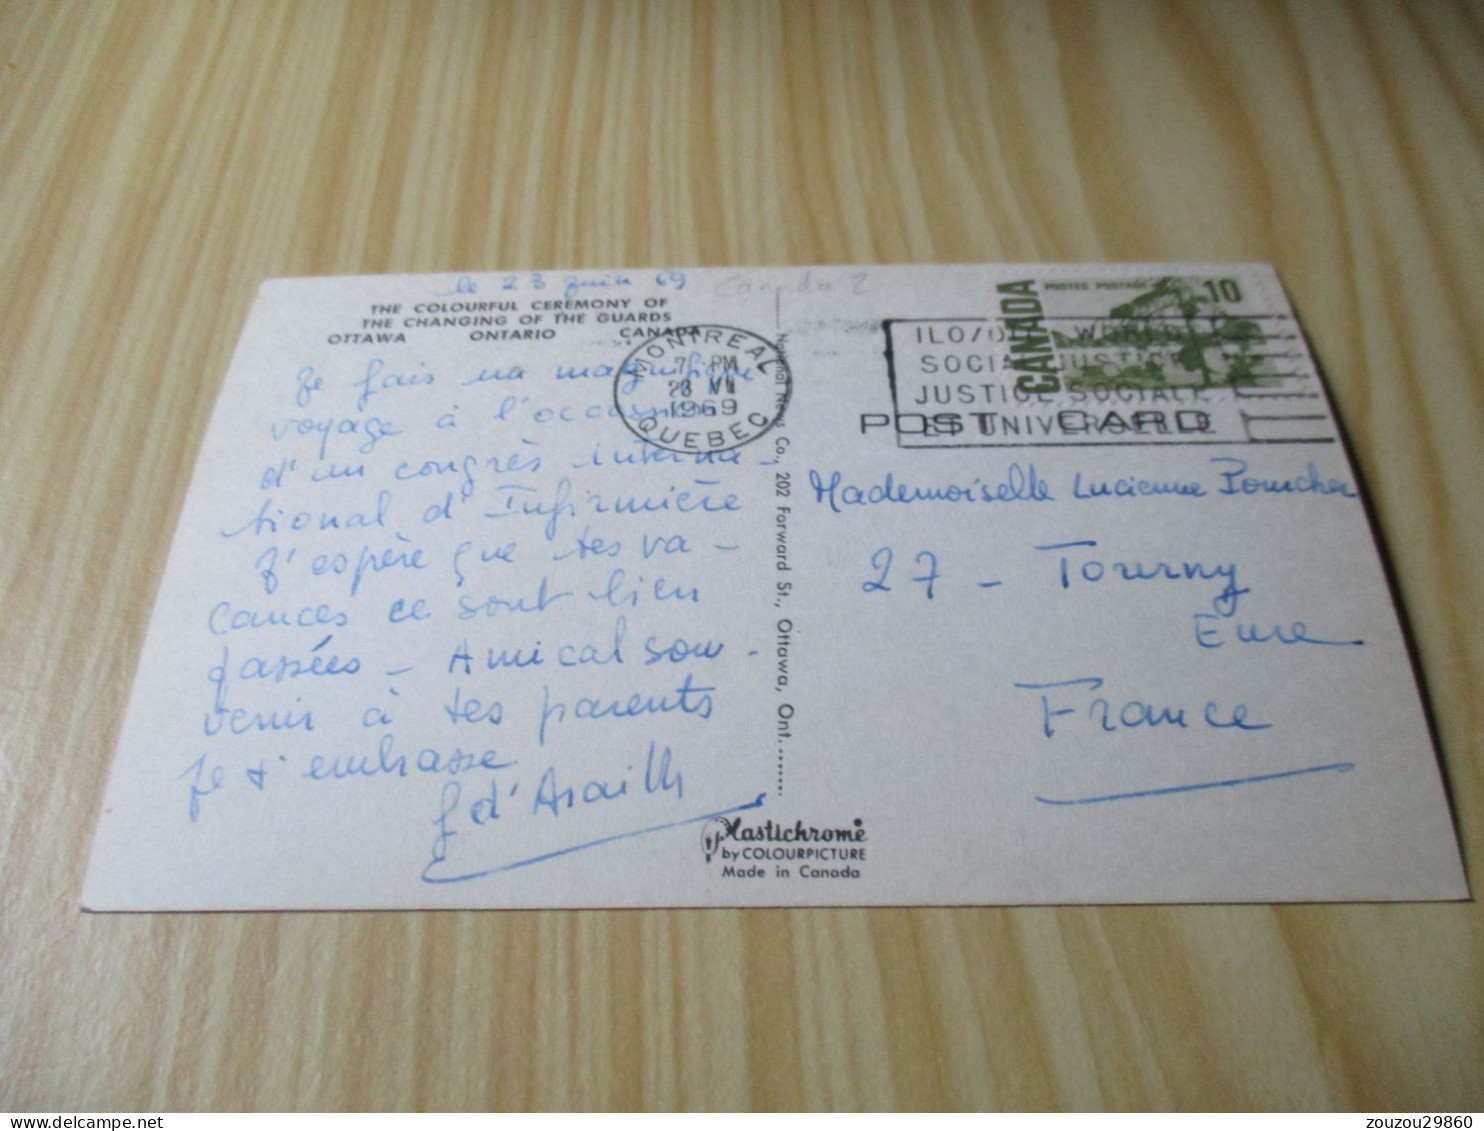 le 23 juin 69
Canada 2
THE COLOURFUL CEREMONY OF
THE CHANGING OF THE GUARDS
OTTAWA ONTARIO CANADA
Je fais un magnifique
voyage à l'occasion
d'un congrès interna-
tional d'Infirmière
J'espère que tes va-
cances se sont bien
passées - Amical sou-
venir à tes parents
Je t'embrasse
MONTREAL
PM
1969
QUEBEC
National News Co., 202 Forward St., Ottawa, Ont.
Plastichrome
by COLOURPICTURE
Made in Canada
CANADA
POSTES POSTAGE
10
ILO/O WORLD
SOCIAL JUSTICE
JUSTICE SOCIALE
ET UNIVERSELLE
POST CARD
Mademoiselle Lucienne
27 - Tourny
Eure
France
zouzou29860